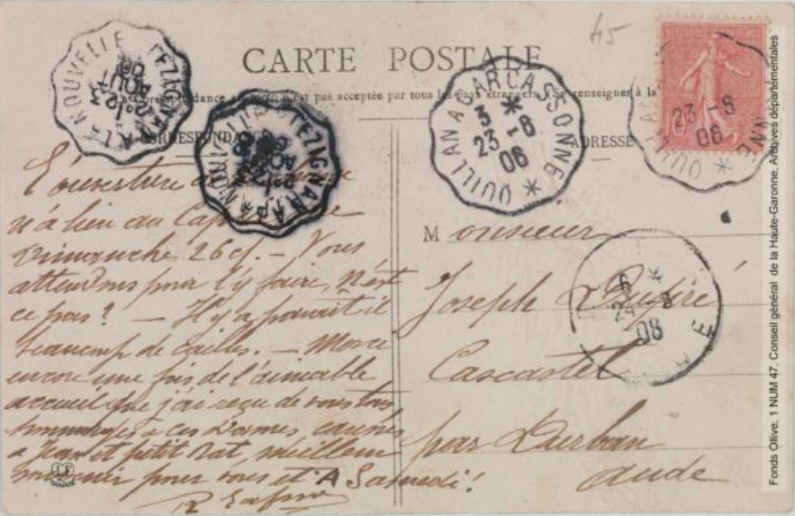 45
CARTE POSTALE
La Correspondance au recto n'est pas acceptée par tous les pays étrangers (Se renseigner à la
CORRESPONDANCE
ADRESSE
LÉZIGNAN A LA NOUVELLE
LÉZIGNAN A LA NOUVELLE
QUILLAN A CARCASSONNE
3
23 - 8
06
QUILLAN A CARCASSONNE
23 - 8
06
10
L'ouverture
n'a lieu au Cap
Dimanche 26 ct. — Vous
attendons pour l'y faire, N'est
ce pas? — Il y a paraît il
beaucoup de cailles. — Merci
encore une fois, de l'aimable
accueil que j'ai reçu de vous tous
hommages à ces Dames, caresses
à Jean et petit Nat, meilleur
souvenir pour vous et A Samedi!
Monsieur
Joseph
Cascastel
par Durban
Aude
6
24 - 8
06
Fonds Ollive, 1 NUM 47, Conseil général de la Haute-Garonne, Archives départementales